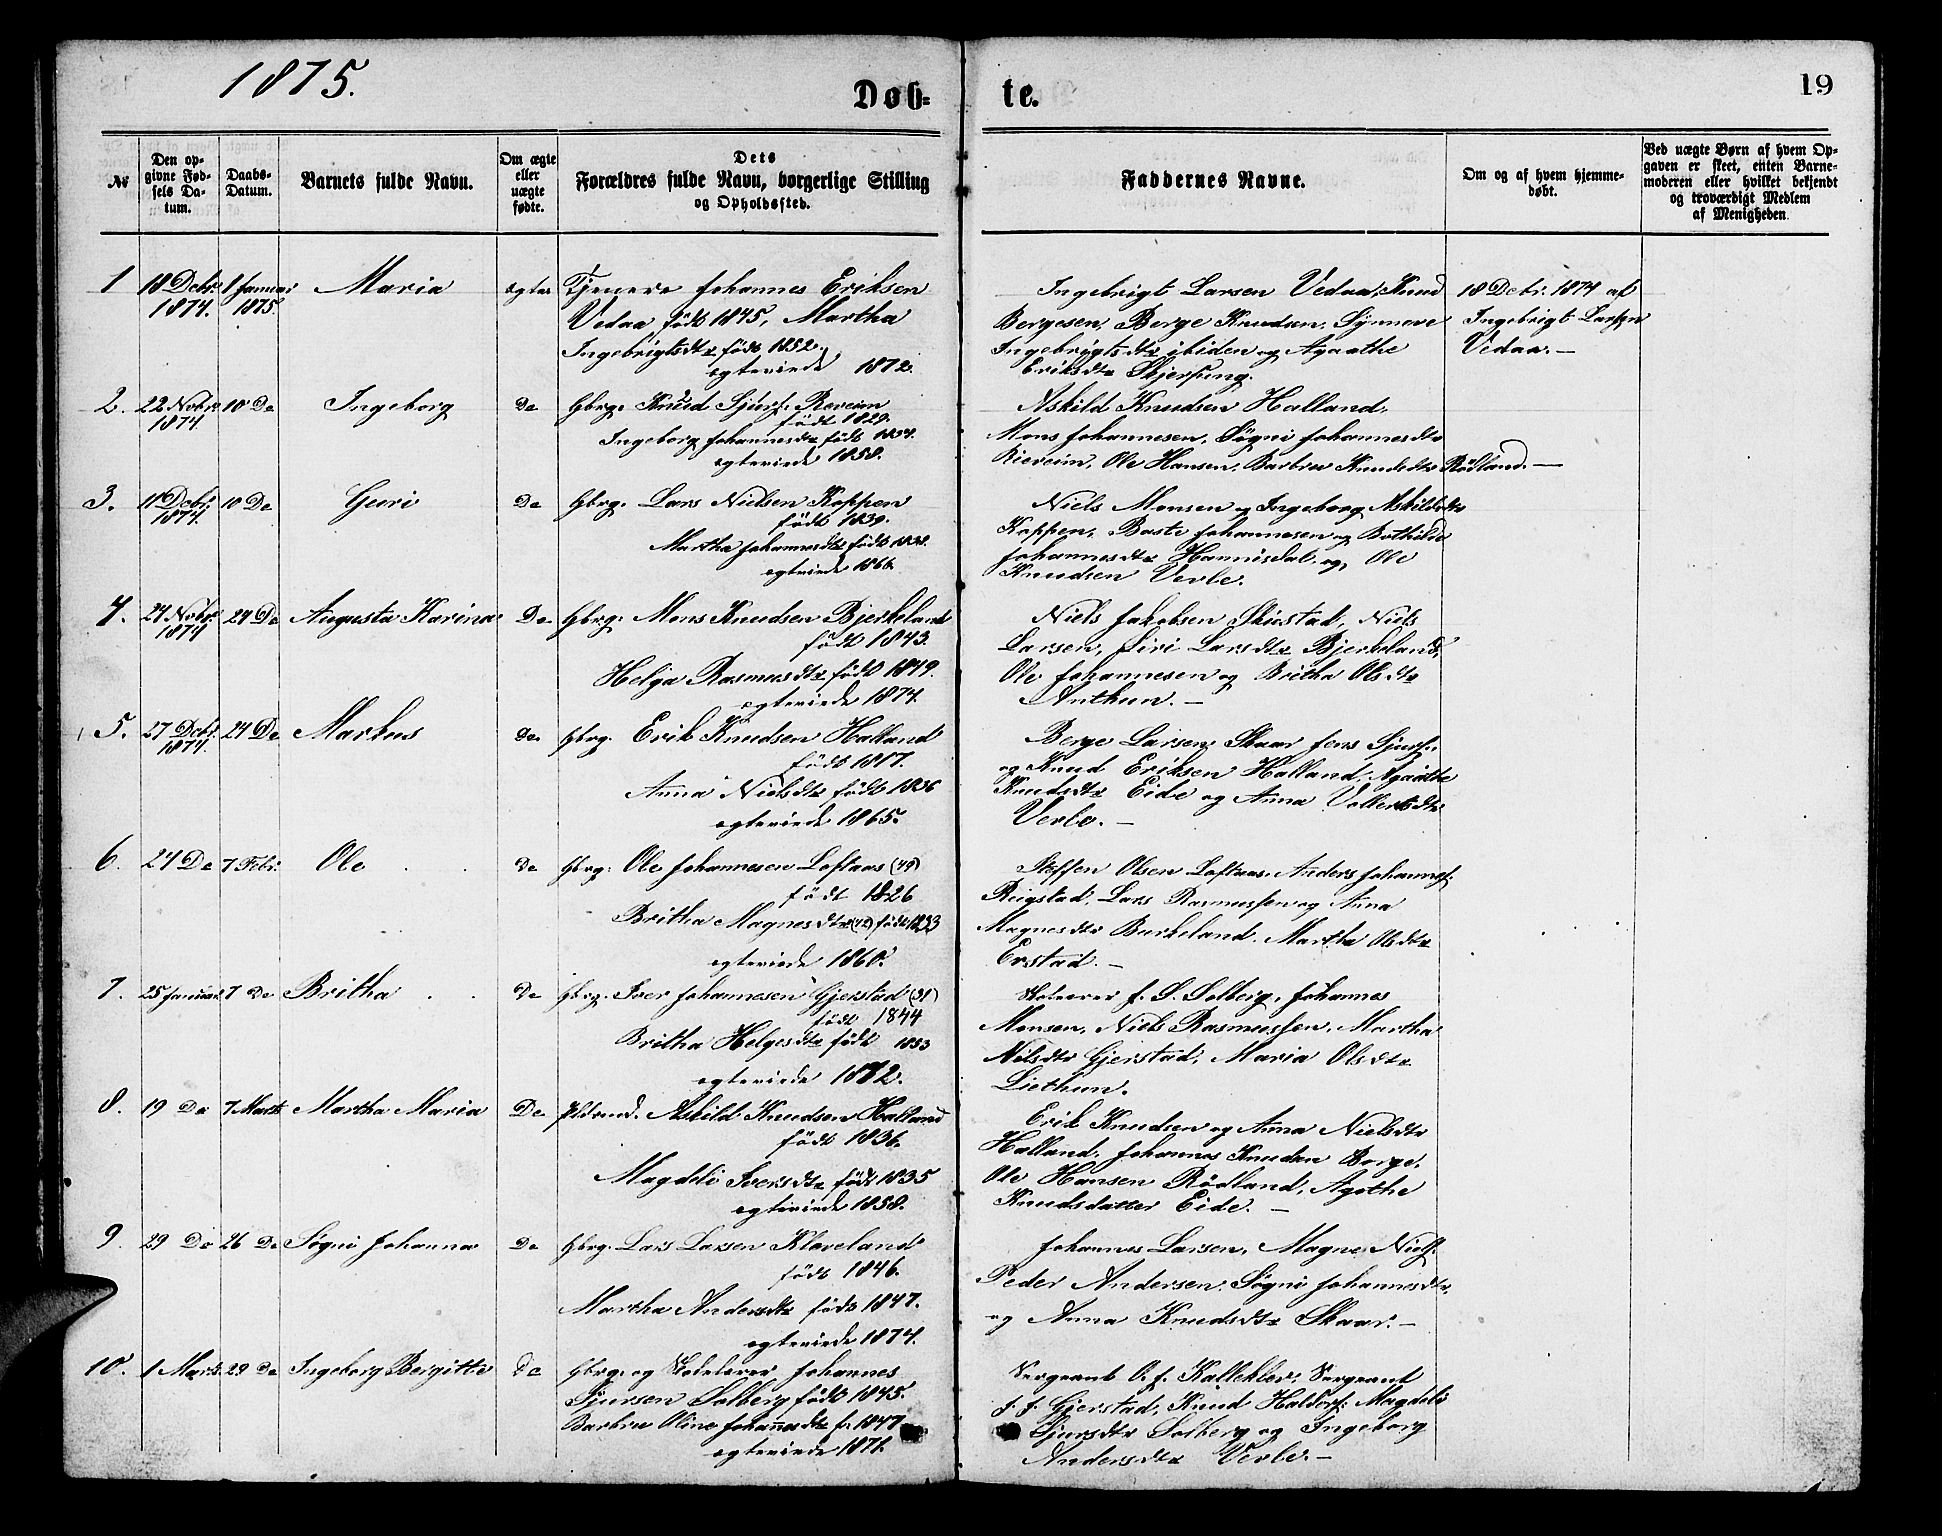 1875.
Døb=
te.
19
№
Den op-
givne Fød-
sels Da-
tum.
Daabs-
Datum.
Barnets fulde Navn.
Om ægte
eller
uægte
fødte.
Dets
Forældres fulde Navn, borgerlige Stilling
og Opholdssted.
Faddernes Navne.
Om og af hvem hjemme-
døbt.
Ved uægte Børn af hvem Op-
gaven er skeet, enten Barne-
moderen eller hvilket bekjendt
og troværdigt Medlem
af Menigheden.
1 18 Decbr. 1 Januar Maria ægte Tjenere Johannes Eriksen
1874. 1875. Vedaa født 1845, Martha
Ingebrigtsdtr født 1852.
egteviede 1872.
Ingebrigt Larsen Vedaa, Knud
Bergesen, Berge Knudsen, Synneve
Ingebrigtsdtr ibiden og Agaathe
Eriksdtr Skjerping.
18 Decbr. 1874 af
Ingebrigt Larsen
Vedaa. —
2. 22 Novbr. 10 Do Ingeborg Do Gbrg. Knud Sjurs. Reveim
1874 født 1829.
Ingeborg Johannesdtr født 1834.
egteviede 1858.
Askild Knudsen Halland,
Mons Johannesen, Søgni Johannesdtr
Rieveim, Ole Hansen, Barbra Knudsdtr Rødland. —
3. 11 Decbr. 10 Do Guri Do Gbrg. Lars Nielsen Koppen
1874. født 1839.
Martha Johannesdtr født 1838.
egteviede 1866.
Niels Monsen og Ingeborg Askildsdtr
Koppen, Baste Johannesen og Bothilda
Johannesdtr Hannisdal og Ole
Knudsen Verle.
4. 24 Novbr. 24 Do Augusta Karina Do Gbrg. Mons Knudsen Bjerkeland
1874 født 1843.
Helga Rasmusdtr født 1849.
egteviede 1874.
Niels Jakobsen Skiestad, Niels
Larsen, Siri Larsdtr Bjerkeland,
Ole Johannesen og Britha Olsdtr
Anthun. —
5. 27 Decbr. 24 Do Markus Do Gbrg. Erik Knudsen Halland
1874. født 1817.
Anna Nielsdtr født 1836
egteviede 1865.
Berge Larsen Skaar Jens Sjurs.
og Knud Eriksen Halland, Agaathe
Knudsdtr Eide og Anna
Verle. —
6. 24 Do 7 Febr. Ole Do Gbrg. Ole Johannesen Loftaas (49)
født 1826
Britha Magnesdtr (42) født 1833
egteviede 1860.
Steffen Olsen Loftaas, Anders Johannes.
Ringstad, Lars Rasmussen og Anna
Magnesdtr Burkeland. Martha Olsdtr
Erstad. —
7. 25 Januar 7 Do Britha Do Gbrg. Iver Johannesen Gjerstad (31)
født 1844
Britha Helgesdtr født 1853
egteviede 1872.
Skolelærer J. S. Solberg, Johannes
Monsen, Niels Rasmussen, Martha
Nilsdtr Gjerstad, Maria Olsdtr
Liethun.
8. 19 Do 7 Marts Martha Maria Do Askild Knudsen Halland
født 1836.
Magdeli Iversdtr født 1835
egteviede 1858.
Erik Knudsen og Anna Nielsdtr
Halland, Johannes Knudsen Borge,
Ole Hansen Rødland, Agothe
Knudsdatter Eide. —
9. 29 Do 26 Do Søgni Johanna Do Gbrg. Lars Larsen Klaveland
født 1846.
Martha Andersdtr født 1847.
egteviede 1874.
Johannes Larsen, Magne Niels.
Peder Andersen, Søgni Johannesdtr,
og Anna Knudsdtr Skaar. —
10. 1 Marts 29 Do Ingeborg Bergitte Do Gbrg. og Skolelærer Johannes
Sjursen Solberg født 1845.
Barbra Oline Johannesdtr f. 1847
egteviede 1871.
Sergeant O. J. Kalleklev, Sergeant
J. J. Gjerstad, Knud Haldors. Magdeli
Sjursdtr Solberg og Ingeborg
Andersdtr Verle. —